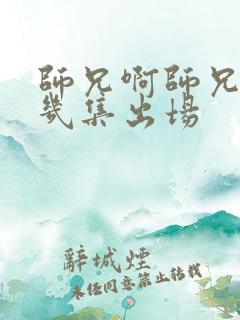 師兄啊師兄
幾集出場
辭城煙
未經同意禁止轉載